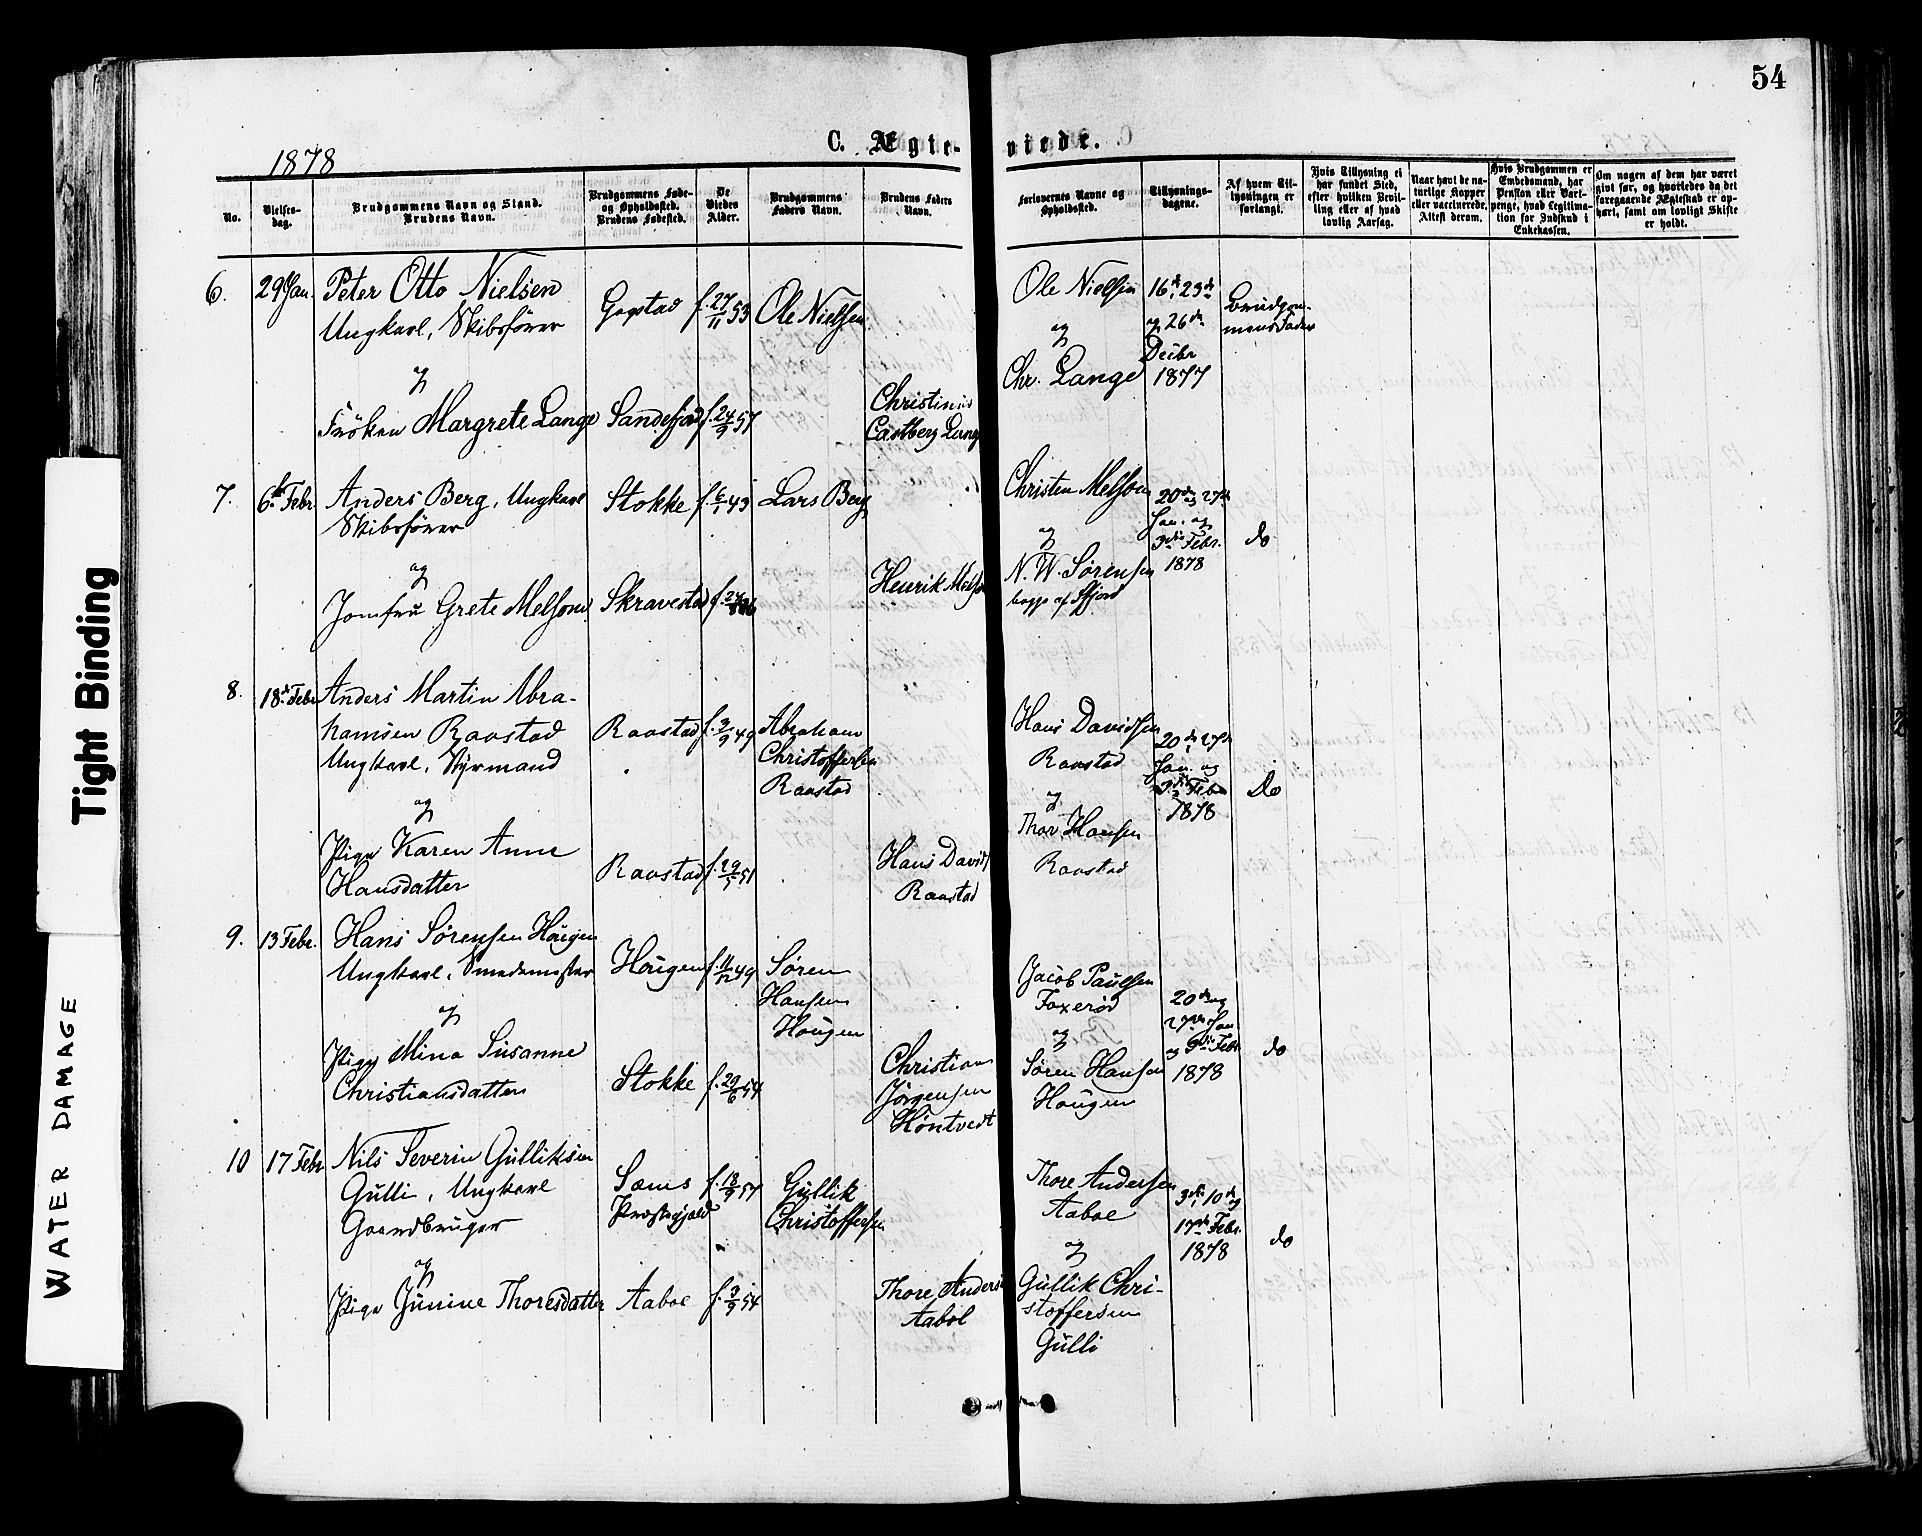 54
C. Ægte-
viede.
1878
No.
Vielses-
dag.
Brudgommens Navn og Stand.
Brudens Navn.
Brudgommens Føde-
og Opholdssted.
Brudens Fødested.
De
Viedes
Alder.
Brudgommens
Faders Navn.
Brudens Faders
Navn.
Forlovernes Navne og
Opholdssted.
Tillysnings-
dagene.
Af hvem Til-
lysningen er
forlangt.
Hvis Tillysning ei
har fundet Sted,
efter hvilken Bevil-
ling eller af hvad
lovlig Aarsag.
Naar havt de na-
turlige Kopper
eller vaccinerede.
Attest derom.
Hvis Brudgommen er
Embedsmand, har
Pension eller Vart-
penge, hvad Legitima-
tion for Indskud i
Enkekassen.
Om nogen af dem har været
givt før, og hvorledes da det
foregaaende Ægteskab er op-
hørt, samt om lovligt Skifte
er holdt.
6.
29 Jan.
Peter Otto Nielsen
Ungkarl, Skibsfører
og
Frøken Margrete Lange
Gogstad
Sandefjord
f. 27/11 53
f. 24/9 57
Ole Nielsen
Christinius
Castberg Lange
Ole Nielsen
og
Chr. Lange
16de, 23de
og 26de
Decbr
1877
Brudgom-
mens Fader
7.
6te Febr.
Anders Berg, Ungkarl
Skibsfører
og
Jomfru Grete Melsom
Stokke
Skravestad
f. 6/1 43
Lars Berg
Henrik Melsom
Christen Melsom
og
N. W. Sørensen
begge af Sfjord
20de og 27de
Jan. og
3die Febr.
1878
do
8.
18de Febr
Anders Martin Abra-
hamsen Raastad
Ungkarl, Styrmand
og
Pige Karen Anne
Hansdatter
Raastad
Raastad
f. 3/9 49
f. 29/5 51
Abraham
Christoffersen
Raastad
Hans Davids
Raastad
Hans Davidsen
Raastad
og
Thor Hansen
Raastad
20de, 27de
Jan. og
3die Febr
1878
Do
9.
13 Febr.
Hans Sørensen Haugen
Ungkarl, Smedemester
og
Pige Mina Susanne
Christiansdatter
Haugen
Stokke
f. 11/12 49
f. 29/6 54
Søren
Hansen
Haugen
Christian
Jørgensen
Høntvedt
Jacob Paulsen
Foxerød
og
Søren Hansen
Haugen
20de og
27de Jan
og 3die Febr
1878
do
10
17 Febr
Nils Severin Gulliksen
Gulli, Ungkarl
Gaardbruger
og
Pige Gunine Thoresdatter
Sæms
Præstegjeld
Aaboe
f. 18/9 57
f. 3/9 54
Gullik
Christoffersen
Thore Anders
Aaboe
Thore Andersen
Aaboe
og
Gullik Chri-
stoffersen
Gulli
3die, 10de og
17de Febr.
1878
do
Tight Binding
WATER DAMAGE